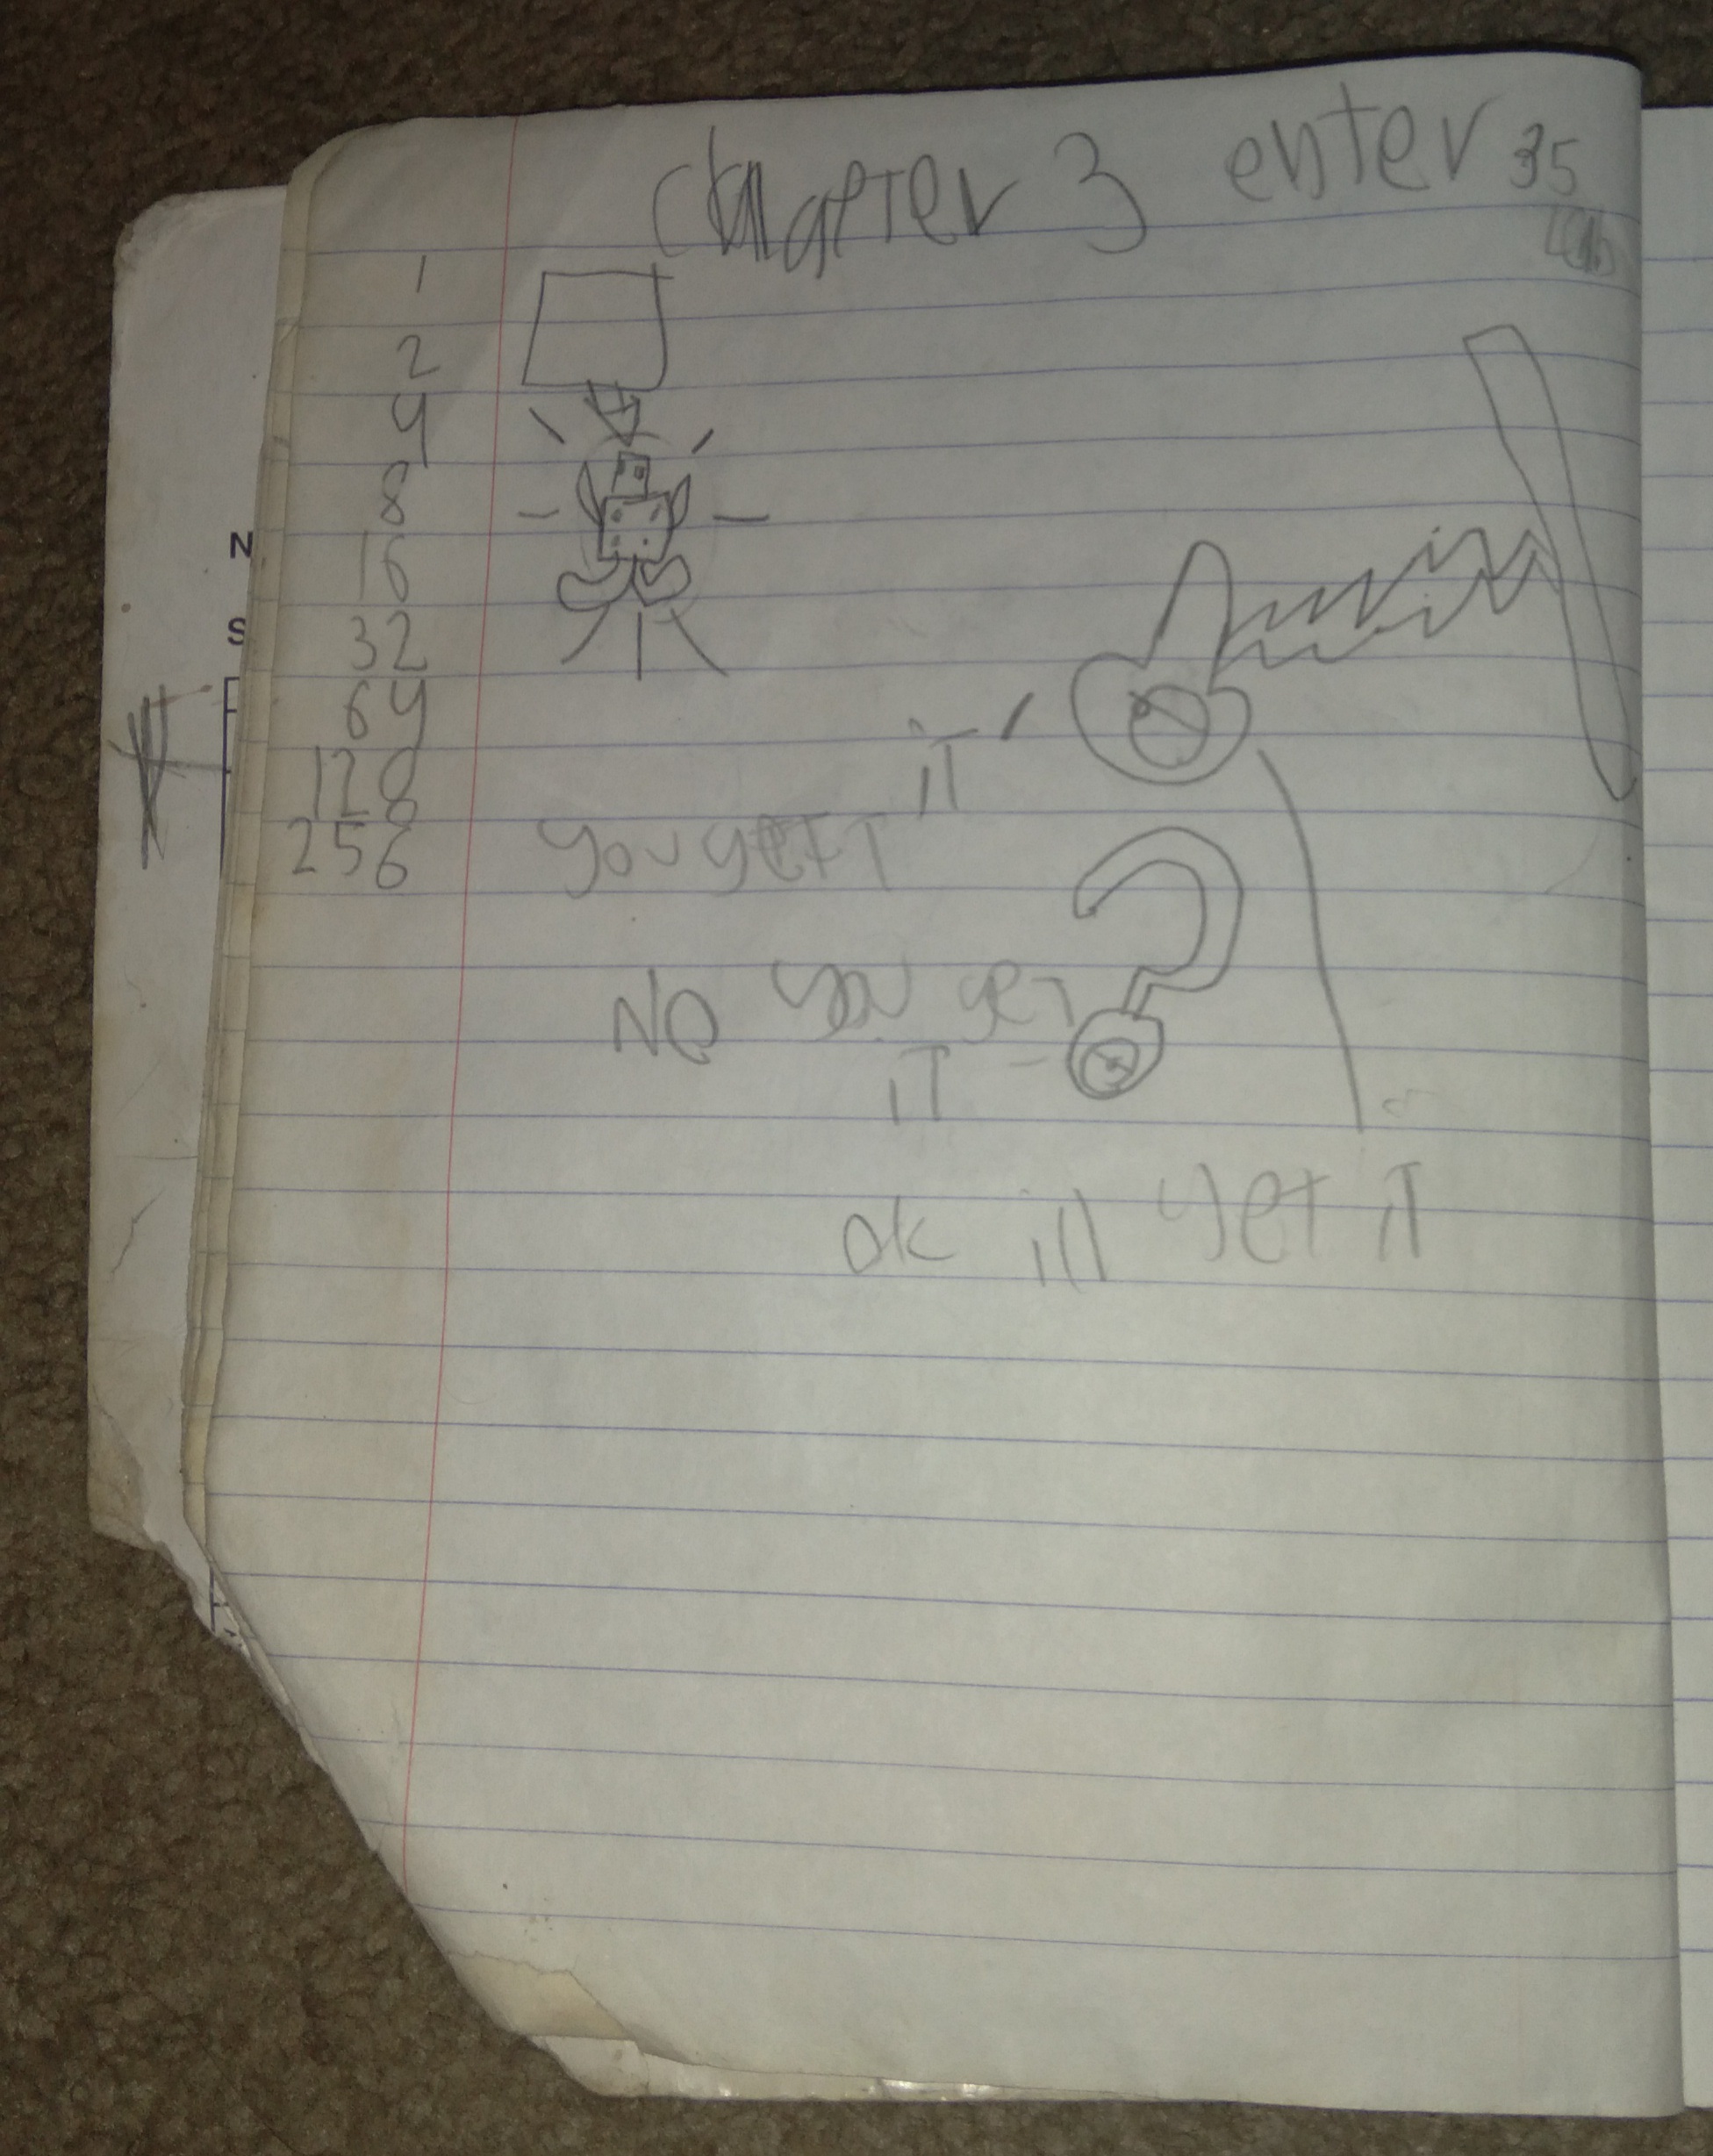 chapter 3 enter 35
1
2
4
8
16
32
64
128
256
it
you get
No you get
it
ok ill get it
N
S